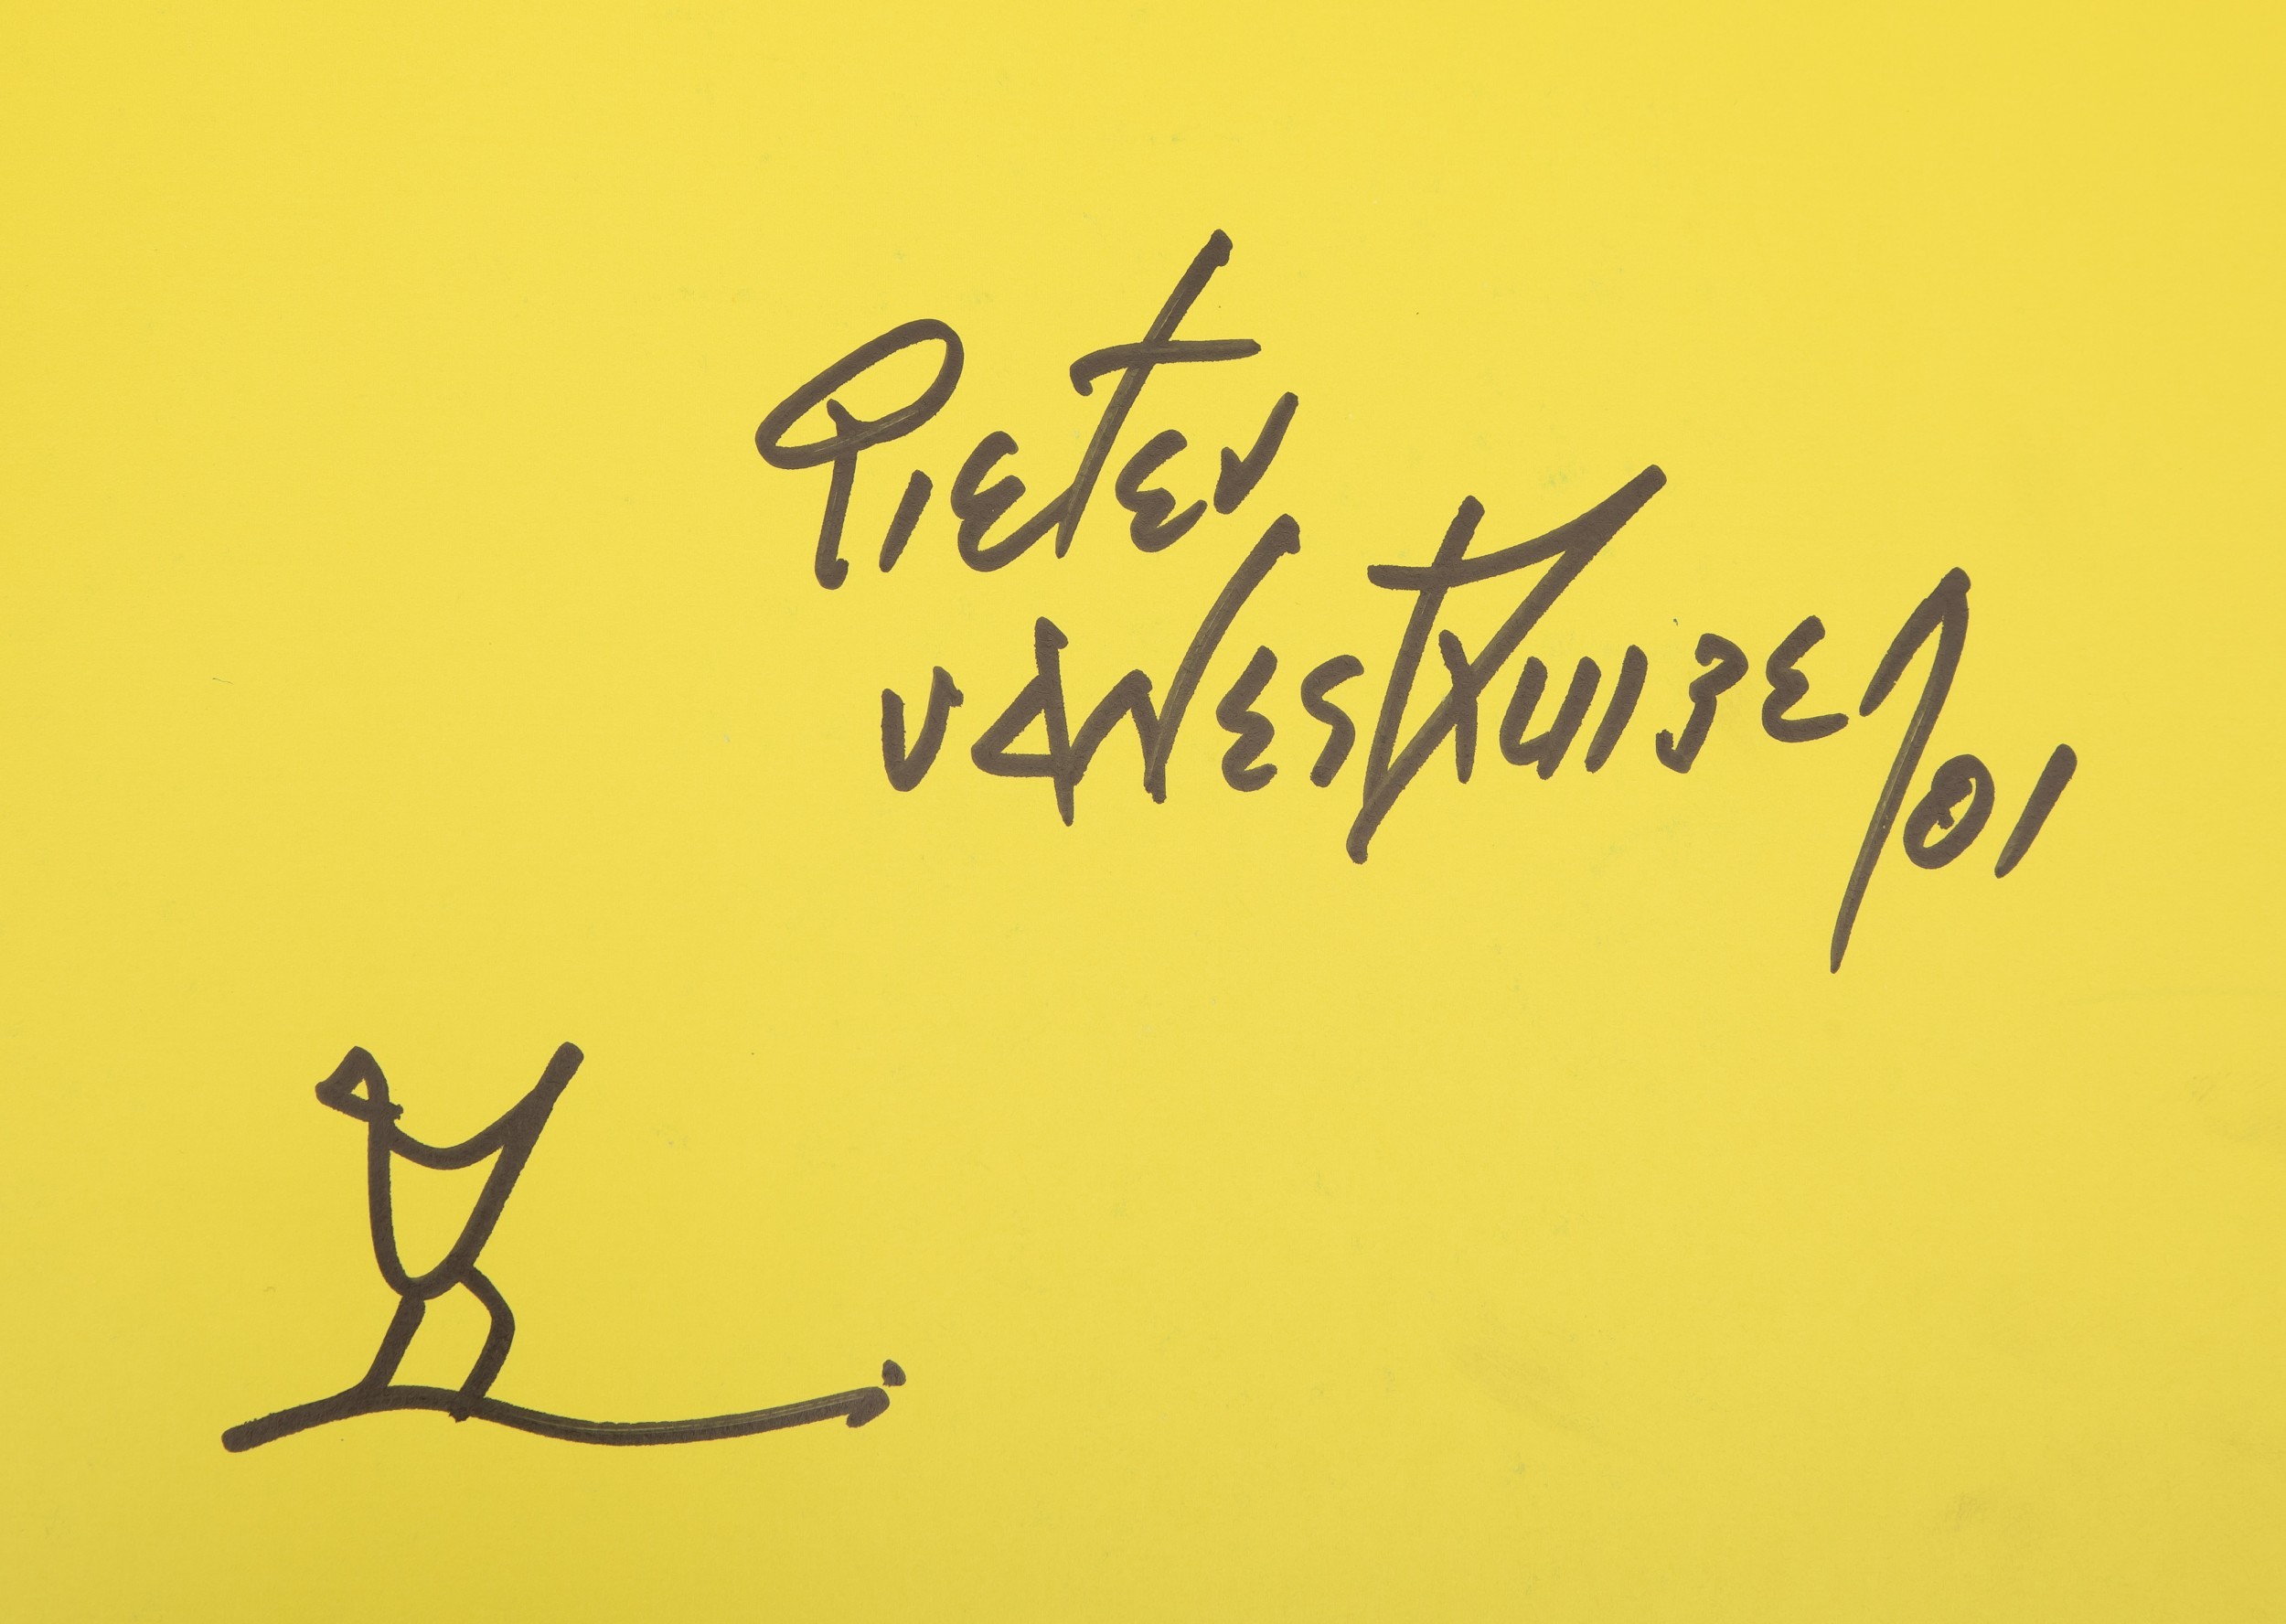 Pieter
vdWesthuizen 01